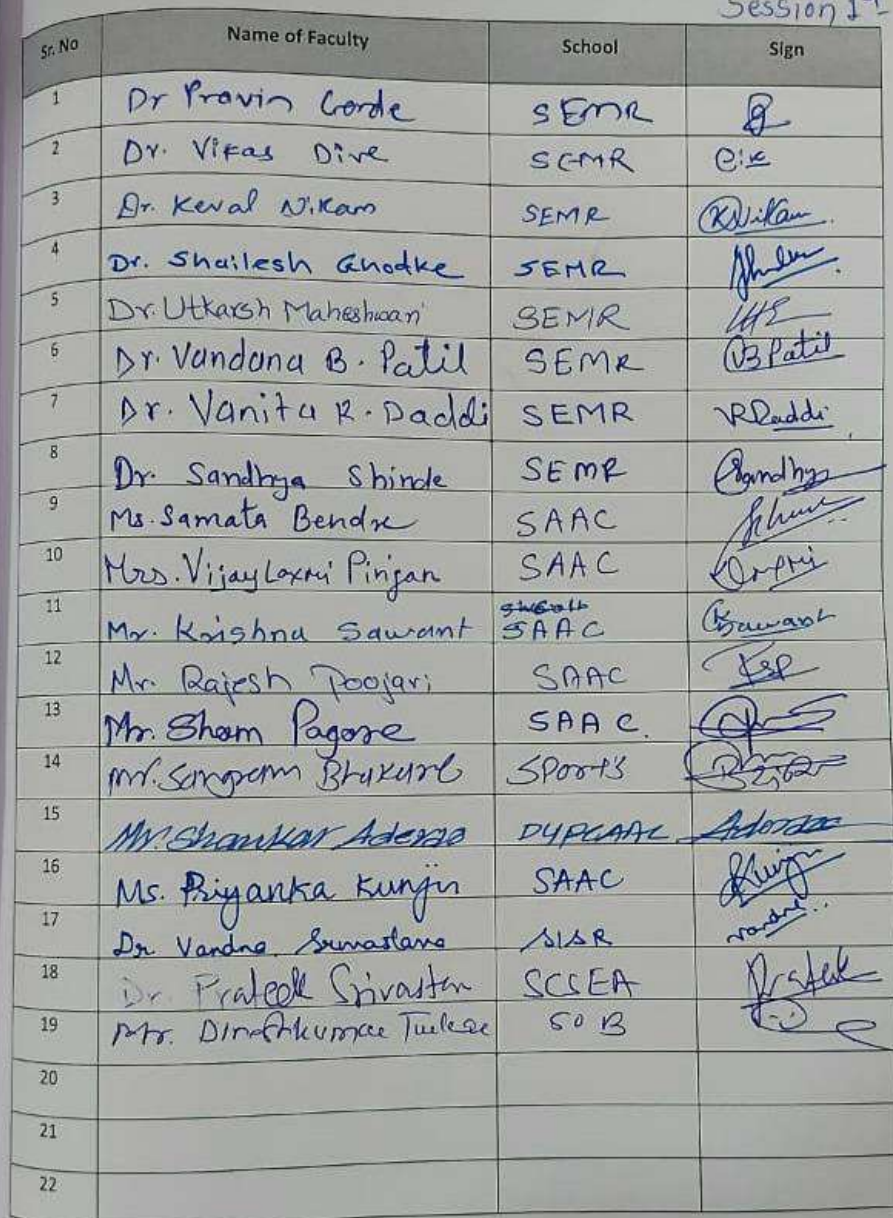 Session I
Sr. No Name of Faculty School Sign
1 Dr Pravin Gorde SEMR
2 Dr. Vikas Dive SEMR
3 Dr. Keval Nikam SEMR KNikam
4 Dr. Shailesh Ghodke SEMR
5 Dr. Utkarsh Maheshwari SEMR
6 Dr. Vandana B. Patil SEMR VB Patil
7 Dr. Vanita R. Daddi SEMR VRDaddi
8 Dr. Sandhya Shinde SEMR Sandhya
9 Ms. Samata Bendre SAAC
10 Mrs. Vijaylaxmi Pinjan SAAC
11 Mr. Krishna Sawant SAAC KSawant
12 Mr. Rajesh Poojari SAAC
13 Mr. Sham Pagore SAAC.
14 Mr. Sangram SPorts
15 Mr. Shankar DYPCAAC
16 Ms. Priyanka Kunjir SAAC
17 Dr Vandna SISR Vandna
18 Dr. Prateek SCSEA Prateek
19 Mr. SOB
20
21
22